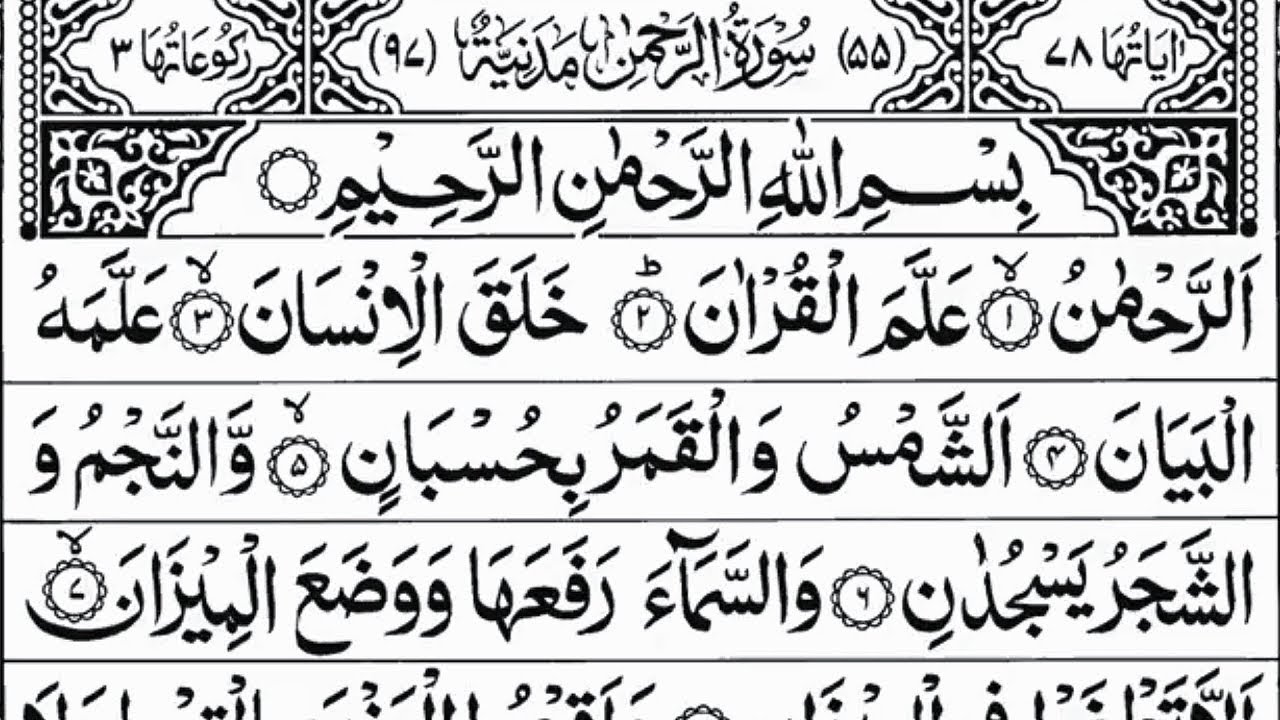 اٰيَاتُهَا ٧٨ (٥٥) سُوْرَةُ الرَّحْمٰنِ مَدَنِيَّةٌ (٩٧) رُكُوْعَاتُهَا ٣
بِسْمِ اللّٰهِ الرَّحْمٰنِ الرَّحِيْمِ
اَلرَّحْمٰنُ ۙ﴿١﴾ عَلَّمَ الْقُرْاٰنَ ؕ﴿٢﴾ خَلَقَ الْاِنْسَانَ ۙ﴿٣﴾ عَلَّمَهُ
الْبَيَانَ ﴿۴﴾ اَلشَّمْسُ وَالْقَمَرُ بِحُسْبَانٍ ۙ﴿۵﴾ وَّالنَّجْمُ وَ
الشَّجَرُ يَسْجُدٰنِ ﴿۶﴾ وَالسَّمَآءَ رَفَعَهَا وَوَضَعَ الْمِيْزَانَ ۙ﴿۷﴾